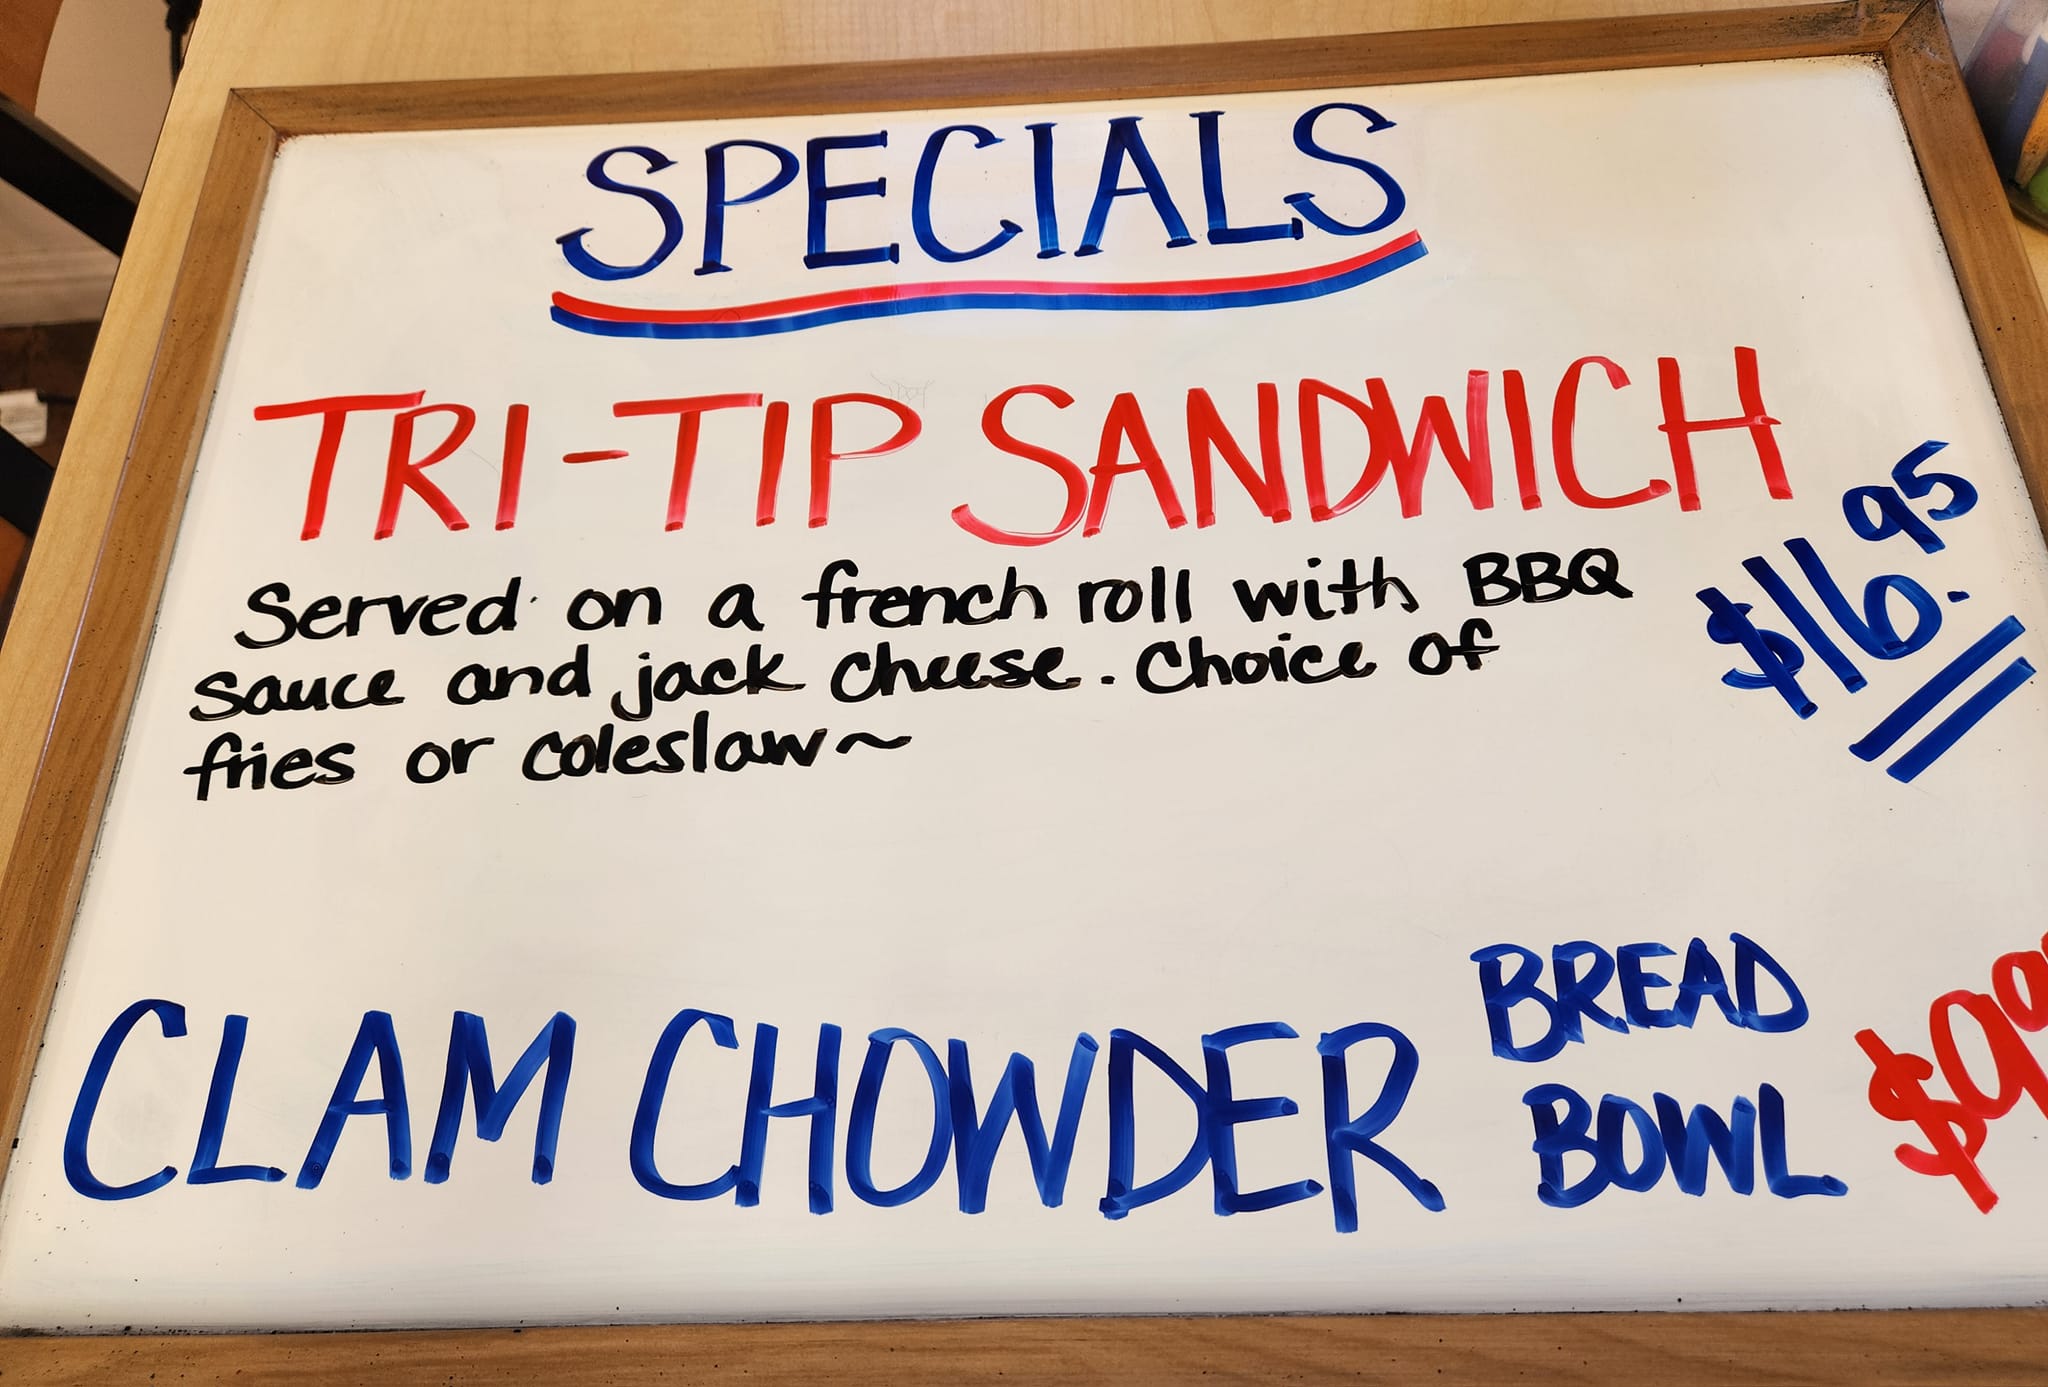 SPECIALS
TRI-TIP SANDWICH
$16.95
Served on a french roll with BBQ
sauce and jack cheese. Choice of
fries or coleslaw~
CLAM CHOWDER
BREAD
BOWL